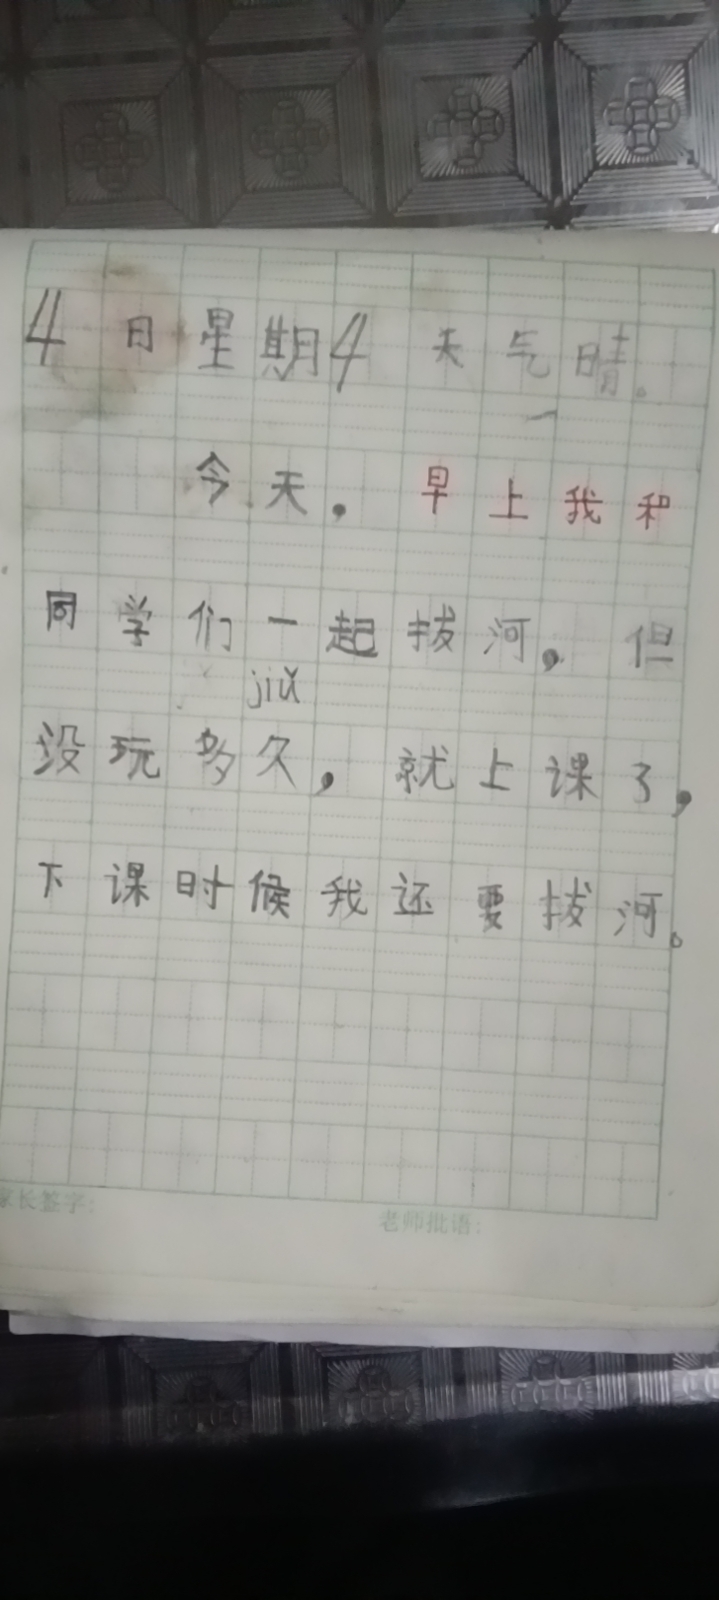 4日星期4 天气晴。
今天，早上我和
同学们一起拔河，但
jiǔ
没玩多久，就上课了，
下课时候我还要拔河。
家长签字：
老师批语：